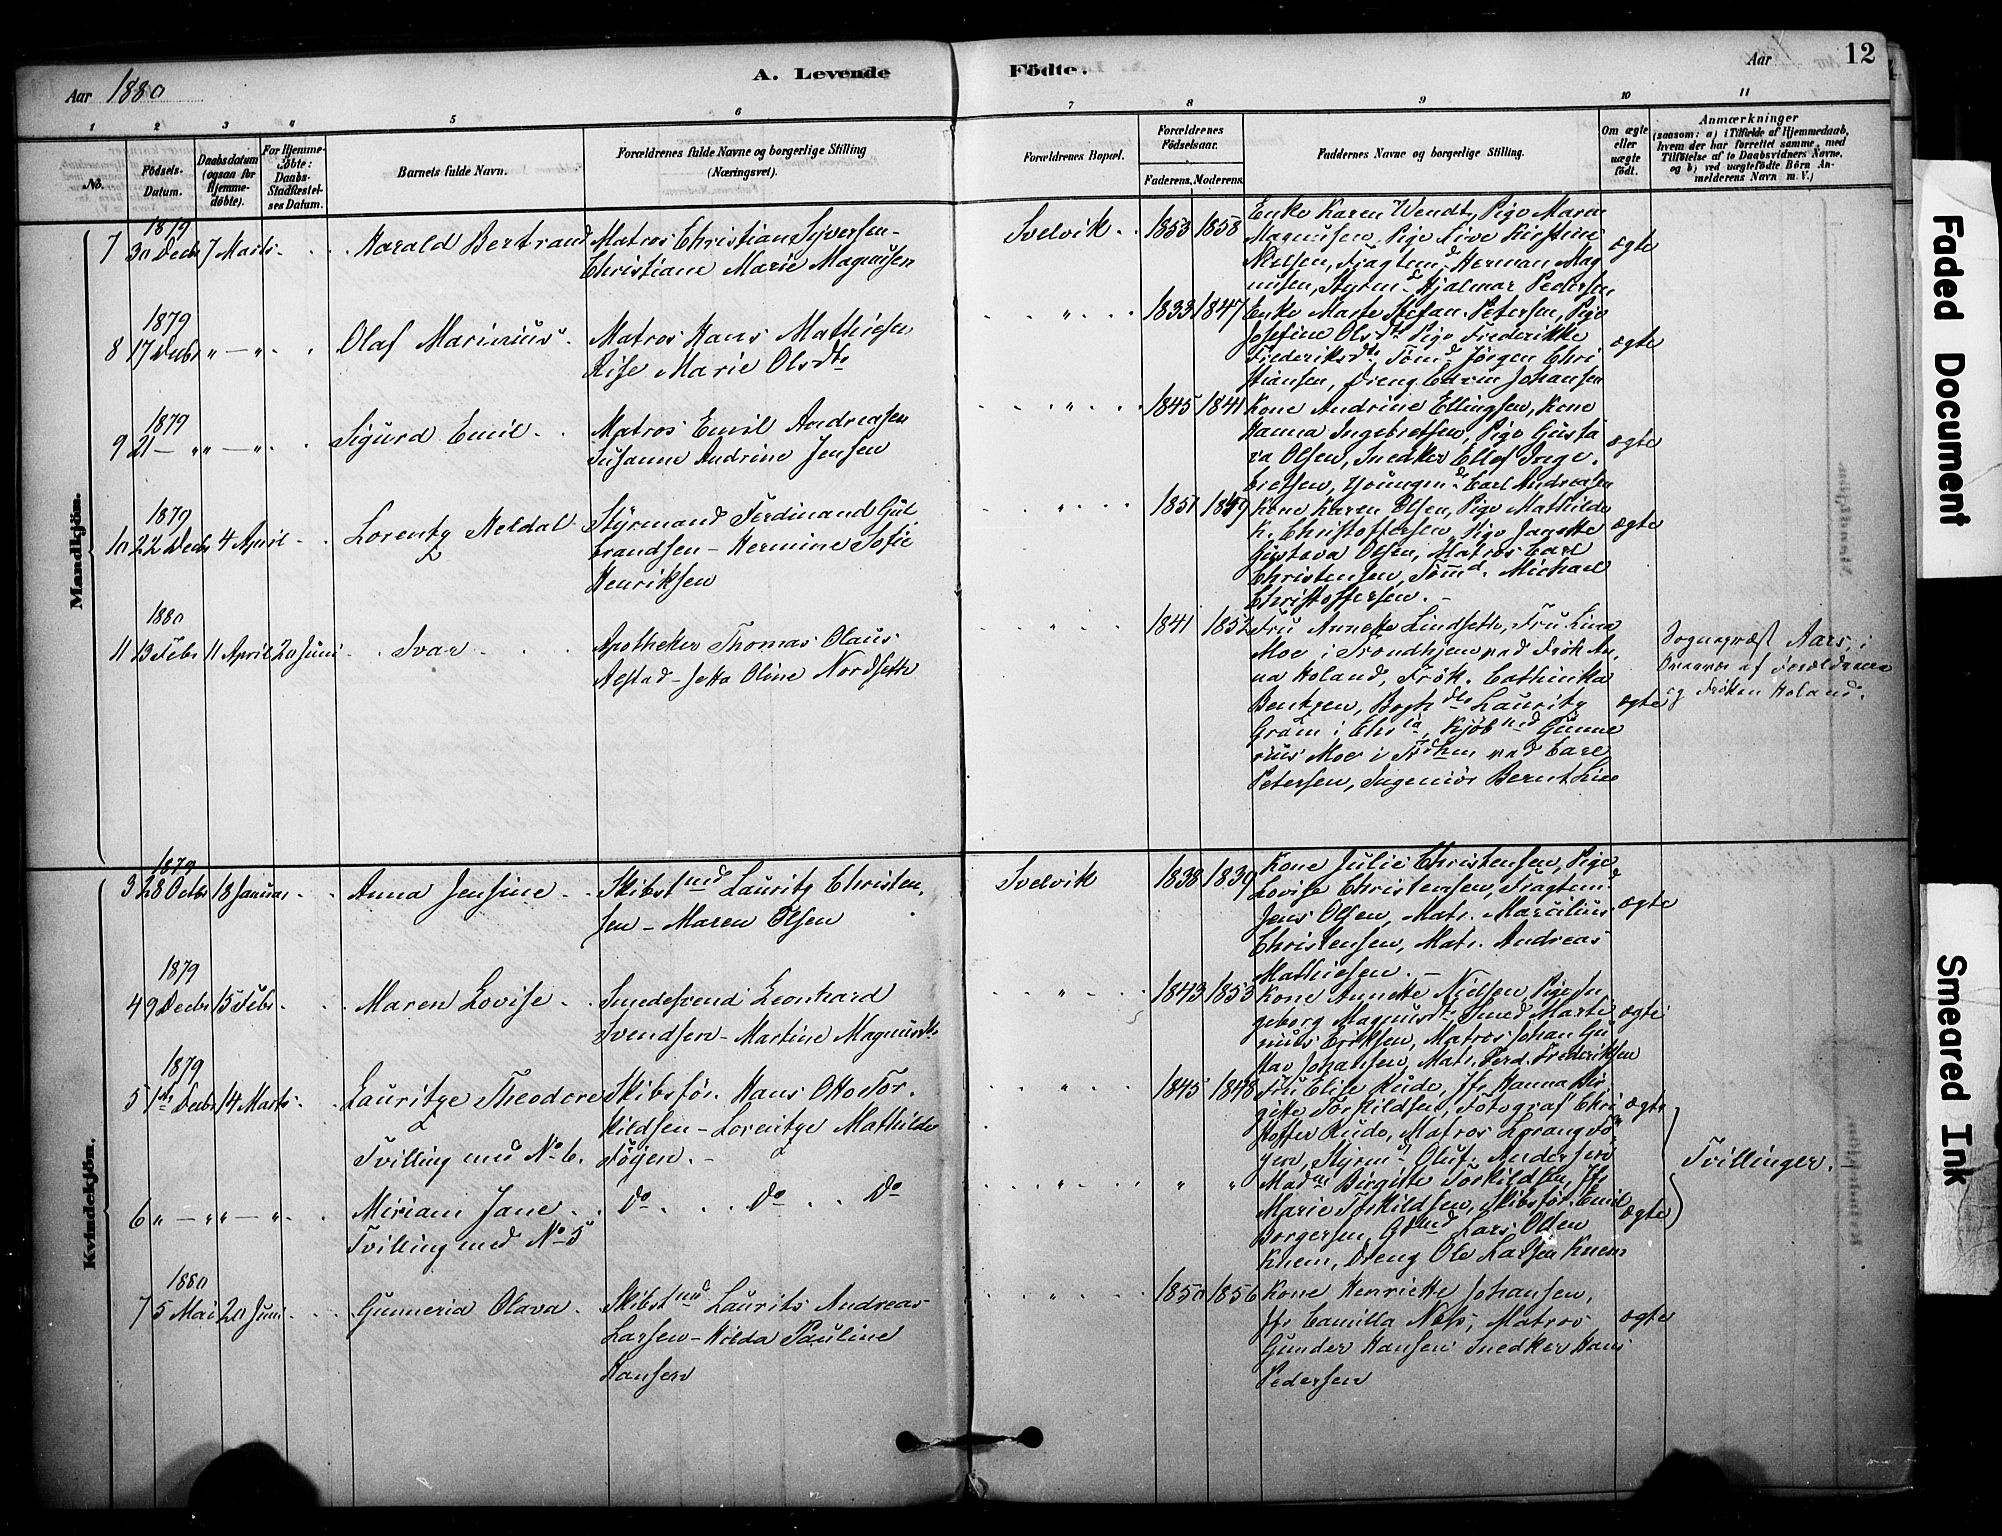 Aar 1880
A. Levende Födte.
Aar
12
1 2 3 4 5 6 7 8 9 10 11
No.
Födsels-Datum.
Daabsdatum (ogsaa for Hjemmedöbte).
For Hjemmedöbte: Daabs-Stadfæstelses Datum.
Barnets fulde Navn.
Forældrenes fulde Navne og borgerlige Stilling (Næringsvei).
Forældrenes Bopæl.
Forældrenes Födselsaar.
Faderens. Moderens.
Faddernes Navne og borgerlige Stilling.
Om ægte eller uægte födt.
Anmærkninger
(saasom: a) i Tilfælde af Hjemmedaab, hvem der har forrettet samme, med Tilföielse af to Daabsvidners Navne, og b) ved uægtefödte Börn Anmelderens Navn m. V.)
Mandkjön.
1879
7 30 Decbr 7 Marts Harald Bertrand Matros Christian Syversen - Christiane Marie Magnusen Svelvik 1853 1858
Enke Karen Wendt, Pige Maren
Magnusen, Pige Live Kristine
Nielsen, Fragtemd Herman Mag
nusen, Styrmd Hjalmar Pedersen.
ægte
1879
8 17 Decbr " — " Olaf Marinius Matros Hans Mathisen Rise Marie Olsdtr " 1833 1847
Enke Marte Stefan. Petersen, Pige
Josefine Olsdtr Pige Frederikke
Frederiksdtr, Tömd Jörgen Chri
stiansen, Dreng Edvin Johansen
ægte
1879
9 21 — " " — " Sigurd Emil Matros Emil Andreasen Susanne Andrine Jensen " 1845 1841
Kone Andrine Ellingsen, Kone
Hanna Ingebretsen, Pige Gusta
va Olsen, Snedker Ellef Inge.
bretsen, Youngmd Carl Andreasen
ægte
1879
10 22 Decbr 4 April Lorentz Meldal Styrmand Ferdinand Gul
brandsen - Hermine Sofie
Henriksen " 1851 1859
Kone Karen Olsen, Pige Mathilde
K. Christoffersen, Pige Janette
Gustava Olsen, Matros Carl
Christensen, Tömd. Michael
Christoffersen. -
ægte
1880
11 13 Febr 11 April 20 Juni Ivar Apotheker Thomas Olaus
Aestad - Jetta Oline Nordseth " 1841 1852
Fru Annette Lindseth, Fru Lina
Moe i Trondhjem ved Frök An
na Holand, Frök. Cathinka
Bentzen, Bogh Lauritz
Gram i Chria, Kjöbmd Gunne
rius Moe i Trdhm ved Carl
Petersen, Ingeniör Bernt Lie
ægte
Sognepræst Aars, i
Overvær af Forældrene
og Fröken Holand.
Kvindekjön.
1879
3 28 Octbr 18 Januar Anna Jensine Skibstmd Lauritz Christen,
sen - Maren Olsen Svelvik 1838 1839
Kone Julie Christensen, Pige
Lovise Christensen, Fragtemd
Jens Olsen, Matr. Marcilius
Christensen, Matr. Andreas
Mathiesen. -
ægte
1879
4 9 Decbr 15 Febr Maren Lovise Smedesvend Leonhard
Svendsen - Martine Magnusdtr " 1843 1853
Kone Annette Nielsen, Pige In
geborg Magnusdtr Smed Marti
nius Eriksen, Matros Johan Gu
stav Johansen, Matr. Ferd. Frederiksen
ægte
1879
5 1ste Decbr 14 Marts Lauritze Theodore
Tvilling med No 6. Skibsför. Hans Otto Tor.
kildsen - Lorentze Mathilde
Föyen. - " 1845 1848
Fru Elise Rude, Jfr Hanna Bir,
gitte Torkildsen, Fotograf Chri
stoffer Rude, Matros Lorang Fö
yen, Styrmd Oluf Andersen
ægte
6 " — " " — " Miriam Jane
Tvilling med No 5 Do Do Do " " "
Madme Birgitte Torkildsen, Jfr
Marie Torkildsen, Skibsför. Emil
Borgersen, Gmd Lars Olsen
Knem, Dreng Ole Larsen Knem
ægte
Tvillinger.
1880
7 5 Mai 20 Juni Gunneria Olava Skibstmd Laurits Andreas
Larsen - Hilda Pauline
Hansen " 1850 1856
Kone Henriette Johansen,
Jfr Camilla Næss, Matros
Gunder Hansen Snedker Hans
Pedersen
ægte
Faded Document
Smeared Ink